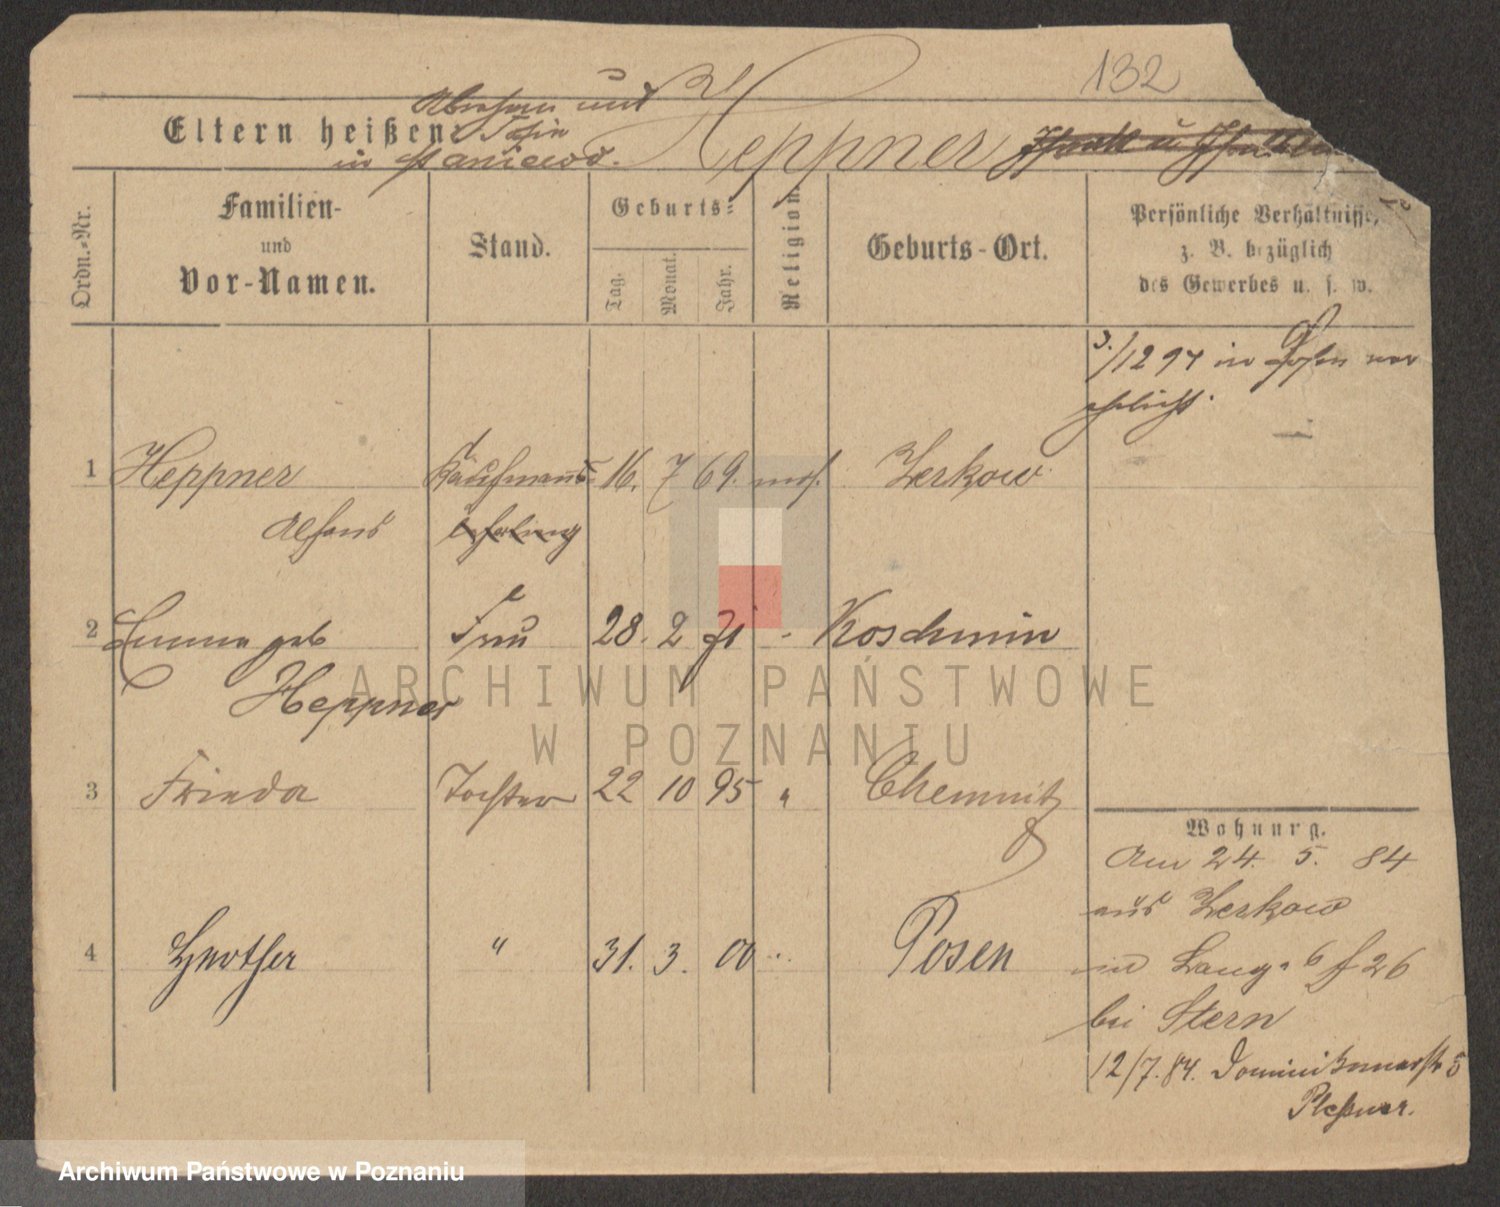 132
Abraham und
Eltern heißen:
Heppner
in
Ordn.-Nr.
Familien-
und
Vor-Namen.
Stand.
Geburts-
Tag.
Monat.
Jahr.
Religion
Geburts-Ort.
Persönliche Verhältnisse,
z. B. bezüglich
des Gewerbes u. s. w.
3./12 94 in Posen ver
ehelicht.
1 Heppner Kaufmann 16. 7 69. mos. Zerkow
Alfons lehrling
2 Emma geb Frau 28. 2 71 - Koschmin
Heppner
3 Frieda Tochter 22 10 95 " Chemnitz
Wohnung.
Am 24. 5. 84
aus Zerkow
4 " 31. 3. 00 " Posen
26
bei Stern
12/7. 84. Dominikanerstr 5
Pleßner.
ARCHIWUM PAŃSTWOWE
W POZNANIU
Archiwum Państwowe w Poznaniu